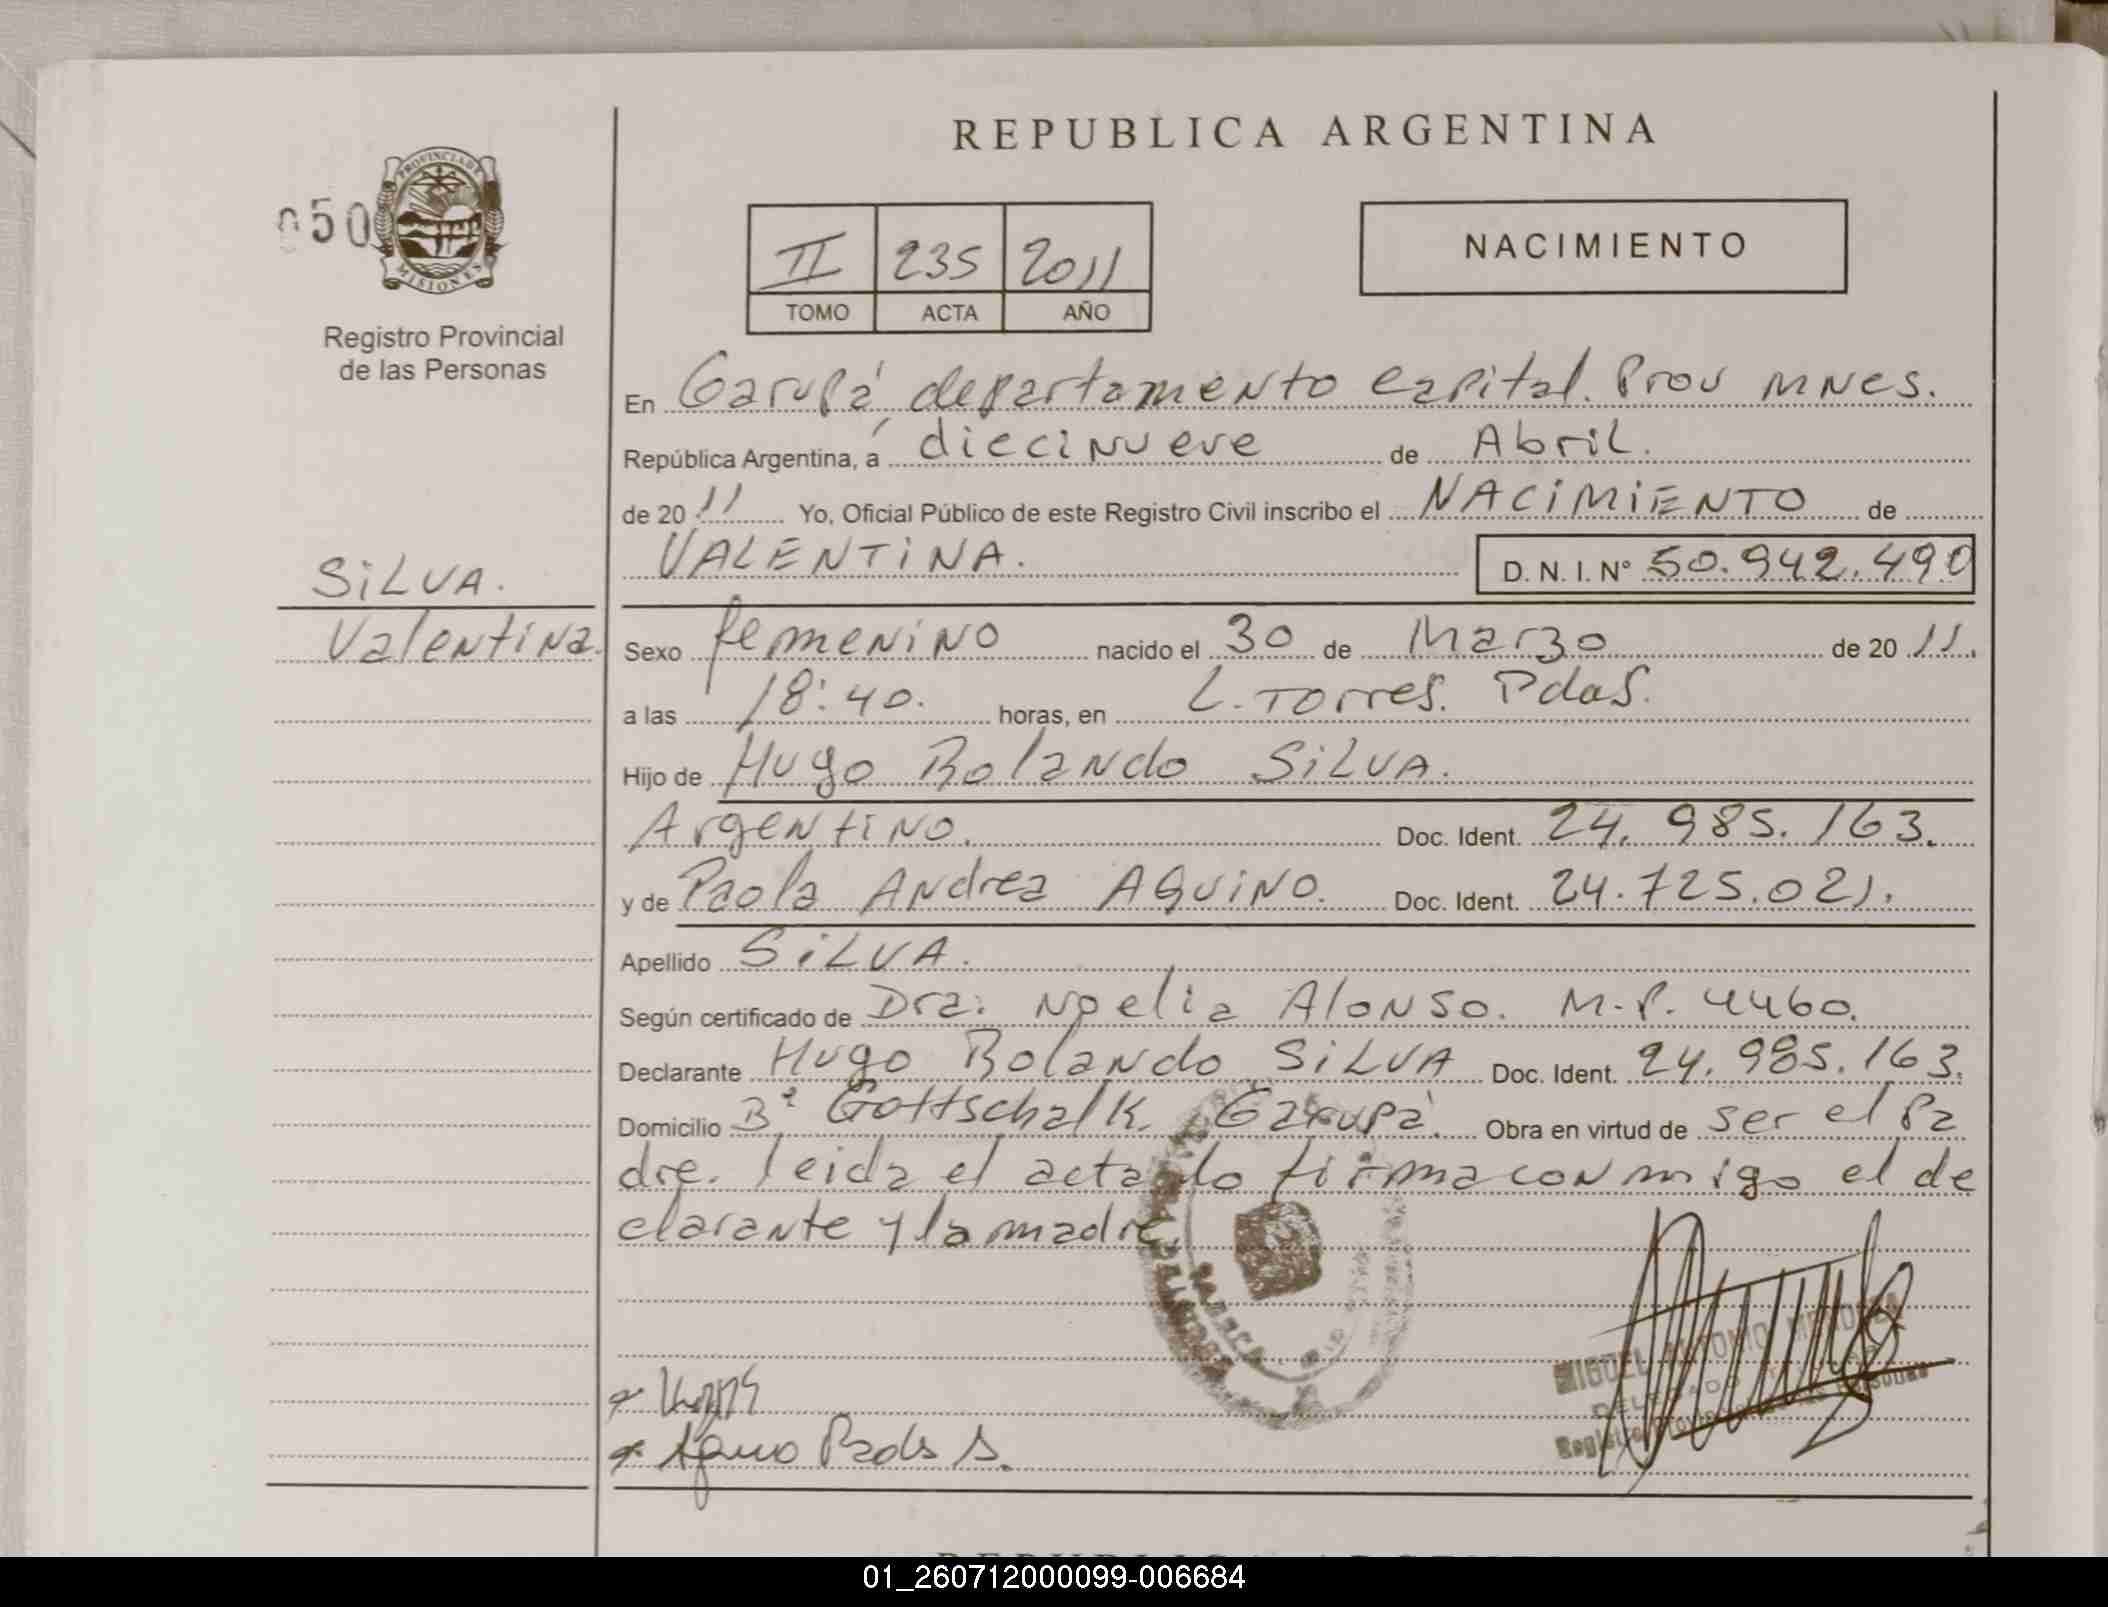 REPUBLICA ARGENTINA
050
PROVINCIA DE
MISIONES
Registro Provincial
de las Personas
II 235 2011
TOMO ACTA AÑO
NACIMIENTO
En Garupá, departamento capital. Prov mnes.
República Argentina, a diecinueve de Abril.
de 20 11 Yo, Oficial Público de este Registro Civil inscribo el NACIMIENTO de
VALENTINA. D. N. I. Nº 50.942.490
SILVA.
Valentina.
Sexo femenino nacido el 30 de Marzo de 20 11.
a las 18:40. horas, en L. Torres. Pdas.
Hijo de Hugo Rolando SILVA.
Argentino. Doc. Ident. 24.985.163.
y de Paola Andrea AQUINO. Doc. Ident. 24.725.021.
Apellido SILVA.
Según certificado de Dra. Noelia Alonso. M.P. 4460.
Declarante Hugo Rolando SILVA Doc. Ident. 24.985.163.
Domicilio Bº Gottschalk. Garupá. Obra en virtud de ser el Pa
dre. leida el acta lo firma conmigo el de
clarante y la madre.
MIGUEL ANTONIO MENDOZA
DELEGADO
Registro Provincial de las Personas
Aquino Paola A.
01_260712000099-006684